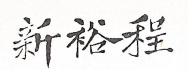 新裕程